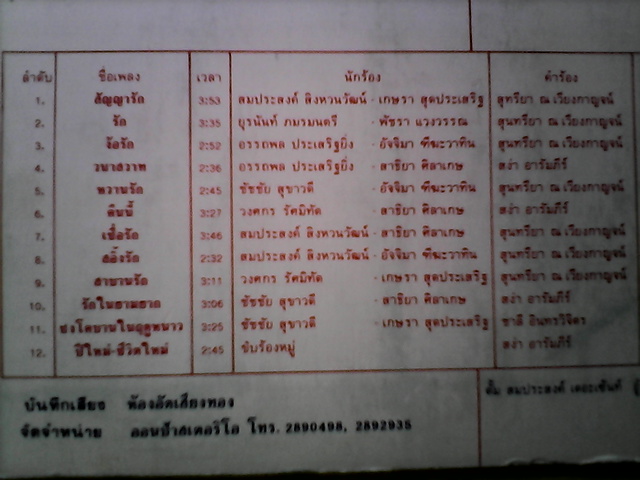 ลำดับ ชื่อเพลง เวลา นักร้อง คำร้อง
1. สัญญารัก 3:53 สมประสงค์ สิงหวนวัฒน์ - เกษรา สุดประเสริฐ สุนทรียา ณ เวียงกาญจน์
2. รัก 3:35 ยุรนันท์ ภมรมนตรี - พัชรา แวงวรรณ สุนทรียา ณ เวียงกาญจน์
3. ง้อรัก 2:52 อรรถพล ประเสริฐยิ่ง - อัจจิมา ฑีฆะวาทิน สุนทรียา ณ เวียงกาญจน์
4. วนาสวาท 2:36 อรรถพล ประเสริฐยิ่ง - สาธิยา ศิลาเกษ สง่า อารัมภีร์
5. หวานรัก 2:45 ชัชชัย สุขาวดี - อัจจิมา ฑีฆะวาทิน สุนทรียา ณ เวียงกาญจน์
6. คืนนี้ 3:27 วงศกร รัศมิทัต - สาธิยา ศิลาเกษ สง่า อารัมภีร์
7. เชื่อรัก 3:46 สมประสงค์ สิงหวนวัฒน์ - สาธิยา ศิลาเกษ สุนทรียา ณ เวียงกาญจน์
8. 2:32 สมประสงค์ สิงหวนวัฒน์ - อัจจิมา ฑีฆะวาทิน สุนทรียา ณ เวียงกาญจน์
9. สายธารรัก 3:11 วงศกร รัศมิทัต - เกษรา สุดประเสริฐ สุนทรียา ณ เวียงกาญจน์
10. รักในยามยาก 3:06 ชัชชัย สุขาวดี - สาธิยา ศิลาเกษ สง่า อารัมภีร์
11. ชงโคบานในฤดูหนาว 3:25 ชัชชัย สุขาวดี - เกษรา สุดประเสริฐ ชาลี อินทรวิจิตร
12. ปีใหม่-ชีวิตใหม่ 2:45 ขับร้องหมู่ สง่า อารัมภีร์
บันทึกเสียง ห้องอัดเสียงทอง
จัดจำหน่าย ออนป้าสเตอริโอ โทร. 2890498, 2892935
สมประสงค์